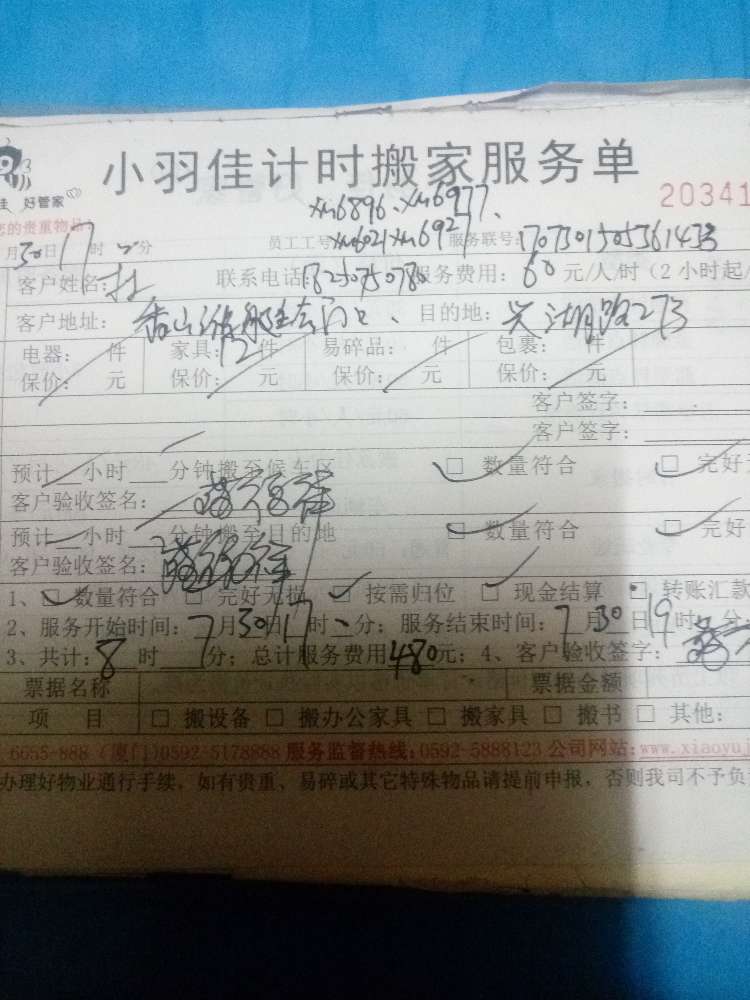 小羽佳计时搬家服务单
好管家
20341
您的贵重物品
xm6896、xm6977、
月30日17时 分 员工工号xm6021xm692 服务联号:170730150536143
客户姓名:杜 联系电话:18250750780 服务费用:60元/人/时(2小时起/
客户地址:香山 门口、 目的地:兴湖路273
电器: 件 家具:12件 易碎品: 件 包裹: 件
保价: 元 保价: 元 保价: 元 保价: 元
客户签字:
客户签字:
预计__小时___分钟搬至候车区 □ 数量符合 □ 完好
客户验收签名:
预计__小时___分钟搬至目的地 □ 数量符合 □ 完好
客户验收签名:
1、□ 数量符合 □ 完好无损 □ 按需归位 □ 现金结算 □ 转账汇款
2、服务开始时间:7月30日17时__分;服务结束时间:7月30日19时__分
3、共计:8时___分;总计服务费用480元;4、客户验收签字:
票据名称 票据金额
项 目 □ 搬设备 □ 搬办公家具 □ 搬家具 □ 搬书 □ 其他:
6055-888 (厦门)0592-5178888 服务监督热线:0592-5888123 公司网站:www.xiaoyu
办理好物业通行手续,如有贵重、易碎或其它特殊物品请提前申报,否则我司不予负